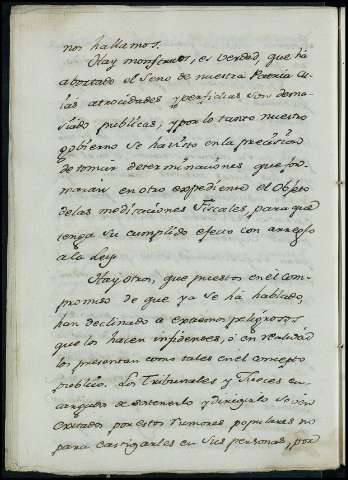 nos hallamos.
Hay monstruos, es verdad, que há
abortado el Seno de nuestra Patria cu-
ias atrocidades y perfidias son dema-
siado publicas, y por lo tanto nuestro
gobierno se ha visto en la precision
de tomar determinaciones que for-
maran en otro expediente el Objeto
de las meditaciones Fiscales, para que
tenga su cumplido efecto con arreglo
a la Ley.
Hay otros, que puestos en el com-
promiso de que ya se há hablado,
han declinado a extremos peligrosos
que los hacen infidentes, ó en realidad
los presentan como tales en el concepto
publico. Los Tribunales y Jueces en-
cargados de sostenerlo y dirigirlo se ven
excitados por estos rumores populares no
para castigarles en sus personas, por